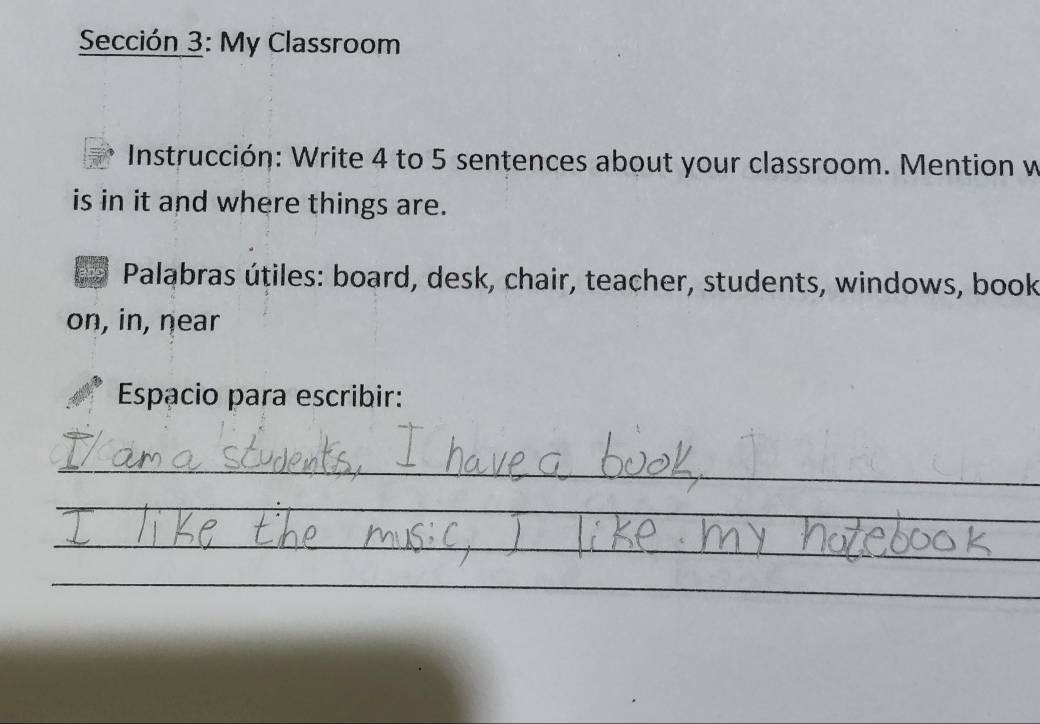 Sección 3: My Classroom
Instrucción: Write 4 to 5 sentences about your classroom. Mention
is in it and where things are.
Palabras útiles: board, desk, chair, teacher, students, windows, book
on, in, near
Espacio para escribir:
I am a students, I have a book,
I like the music, I like my notebook